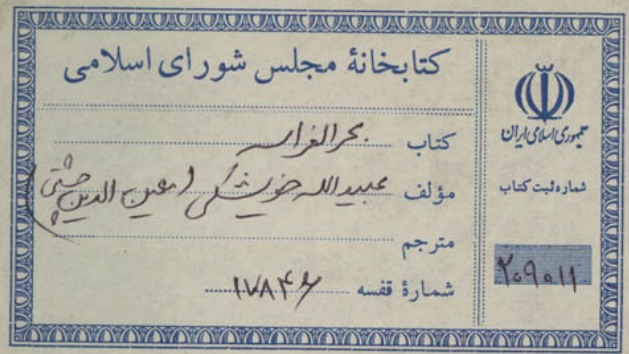 کتابخانهٔ مجلس شورای اسلامی
کتاب بحر الفراسه
مؤلف عبیدالله خویشگی (معین الدین چشتی)
مترجم
شمارهٔ قفسه ۱۷۸۴۶
جمهوری اسلامی ایران
شماره ثبت کتاب
۲۰۹۰۱۱